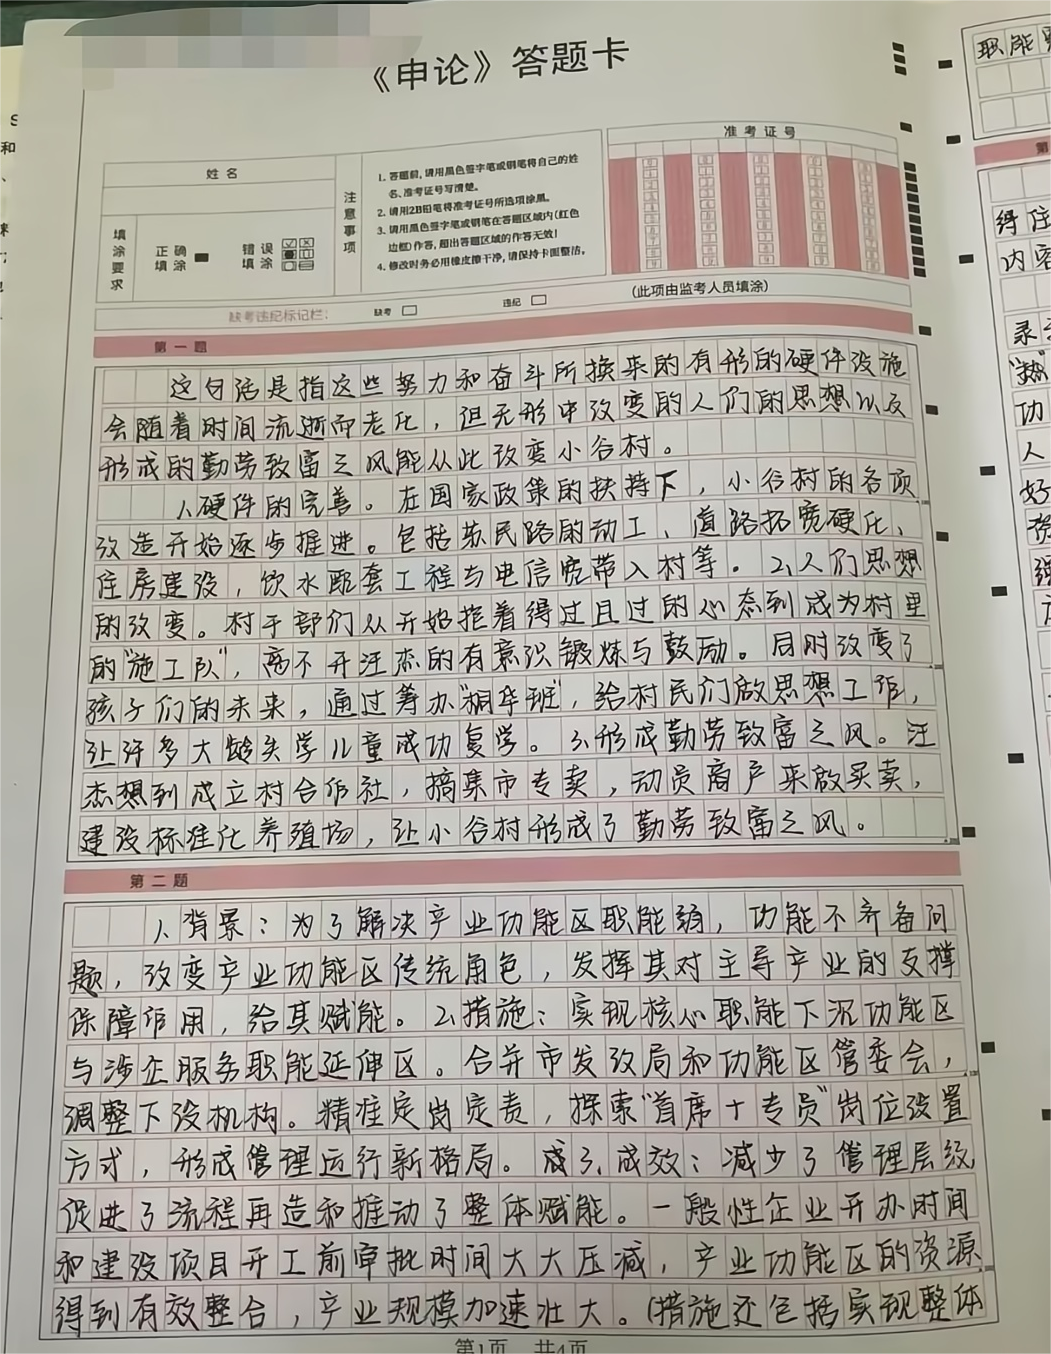 《申论》答题卡
准考证号
姓名
注意事项
1. 答题前,请用黑色签字笔或钢笔将自己的姓
名、准考证号写清楚。
2. 请用2B铅笔将准考证号所选项涂黑。
3. 请用黑色签字笔或钢笔在答题区域内(红色
边框)作答,超出答题区域的作答无效!
4. 修改时务必用橡皮擦干净,请保持卡面整洁。
填涂要求
正确填涂
错误填涂
缺考违纪标记栏:
缺考
违纪
(此项由监考人员填涂)
第一题
这句话是指这些努力和奋斗所换来的有形的硬件设施
会随着时间流逝而老化,但无形中改变的人们的思想以及
形成的勤劳致富之风能从此改变小谷村。
1、硬件的完善。在国家政策的扶持下,小谷村的各项
改造开始逐步推进。包括苏民路的动工、道路拓宽硬化、
住房建设,饮水配套工程与电信宽带入村等。2、人们思想
的改变。村干部们从开始抱着得过且过的心态到成为村里
的“施工队”,离不开汪杰的有意识锻炼与鼓励。同时改变了
孩子们的未来,通过筹办“桐华班”,给村民们做思想工作,
让许多大龄失学儿童成功复学。3、形成勤劳致富之风。汪
杰想到成立村合作社,搞集市专卖,动员商户来做买卖,
建设标准化养殖场,让小谷村形成了勤劳致富之风。
第二题
1、背景:为了解决产业功能区职能弱,功能不齐备问
题,改变产业功能区传统角色,发挥其对主导产业的支撑
保障作用,给其赋能。2、措施:实现核心职能下沉功能区
与涉企服务职能延伸区。合并市发改局和功能区管委会,
调整下设机构。精准定岗定责,探索“首席+专员”岗位设置
方式,形成管理运行新格局。成3、成效:减少了管理层级,
促进了流程再造和推动了整体赋能。一般性企业开办时间
和建设项目开工前审批时间大大压减,产业功能区的资源
得到有效整合,产业规模加速壮大。(措施还包括实现整体
第1页 共4页
职能
第
得住
内容
录
功
人
好